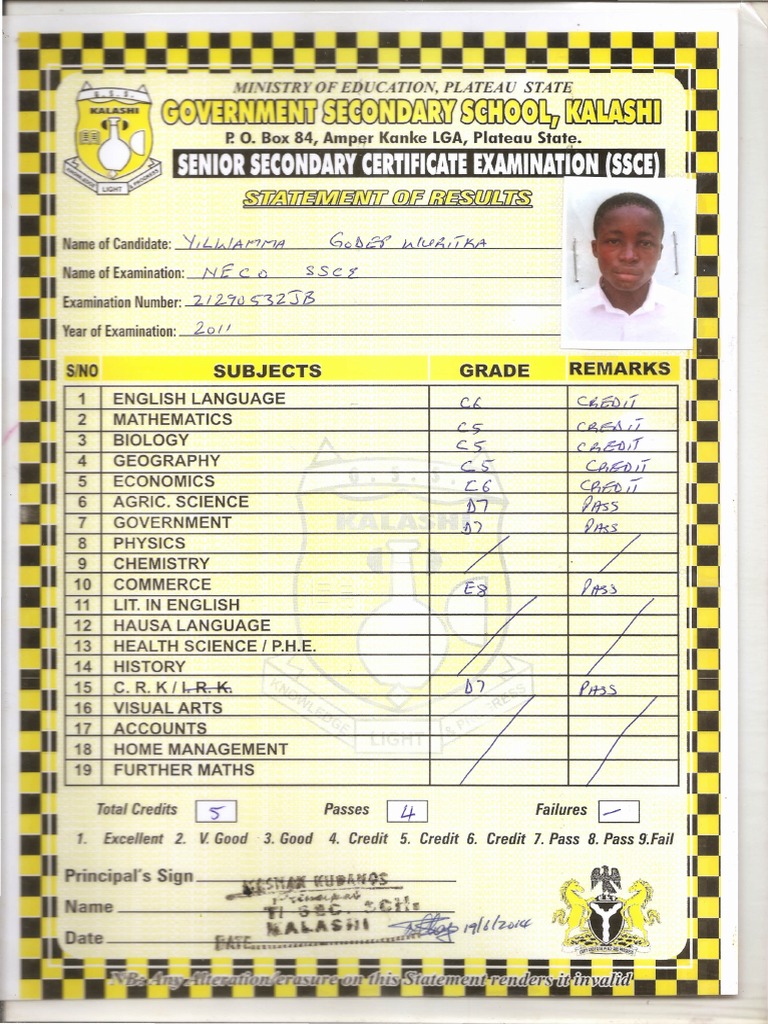 G.S.S.
KALASHI
KNOWLEDGE LIGHT & PROGRESS
MINISTRY OF EDUCATION, PLATEAU STATE
GOVERNMENT SECONDARY SCHOOL, KALASHI
P. O. Box 84, Amper Kanke LGA, Plateau State.
SENIOR SECONDARY CERTIFICATE EXAMINATION (SSCE)
STATEMENT OF RESULTS
Name of Candidate: YILWAMMA GODEP WURITKA
Name of Examination: NECO SSCE
Examination Number: 21290532JB
Year of Examination: 2011
S/NO SUBJECTS GRADE REMARKS
1 ENGLISH LANGUAGE C6 CREDIT
2 MATHEMATICS C5 CREDIT
3 BIOLOGY C5 CREDIT
4 GEOGRAPHY C5 CREDIT
5 ECONOMICS C6 CREDIT
6 AGRIC. SCIENCE D7 PASS
7 GOVERNMENT D7 PASS
8 PHYSICS
9 CHEMISTRY
10 COMMERCE E8 PASS
11 LIT. IN ENGLISH
12 HAUSA LANGUAGE
13 HEALTH SCIENCE / P.H.E.
14 HISTORY
15 C. R. K / I. R. K. D7 PASS
16 VISUAL ARTS
17 ACCOUNTS
18 HOME MANAGEMENT
19 FURTHER MATHS
G.S.S.
KALASHI
KNOWLEDGE LIGHT & PROGRESS
Total Credits 5 Passes 4 Failures —
1. Excellent 2. V. Good 3. Good 4. Credit 5. Credit 6. Credit 7. Pass 8. Pass 9.Fail
Principal's Sign
Principal
Name
SEC. SCH.
KALASHI
Date DATE 19/6/2014
NB: Any Alteration/erasure on this Statement renders it invalid